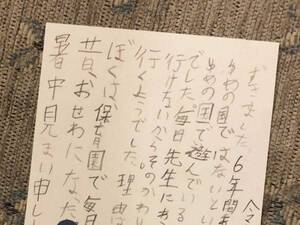 暑中見まい申し
昔、おせわになった
ぼくは、保育園で毎
行くようでした。理由は
行けないからそのかわり
でした。毎日先生にあ
ゆめの国で遊んでいる
ゆめの国ではないとい
すぎました。6年間
今